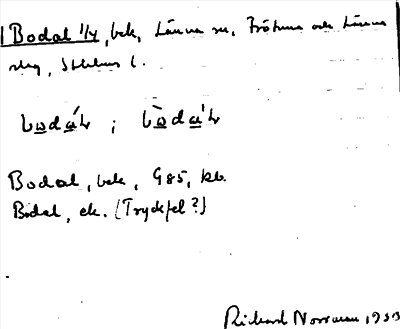 Bodal 1/4, bek, Länna sn, Frötuna och Länna
slg, Sthlms l.
bodál ; bòdál
Bodal, bek, G85, kb.
Bidal, ek. (Tryckfel?)
Richard Norrman 1933